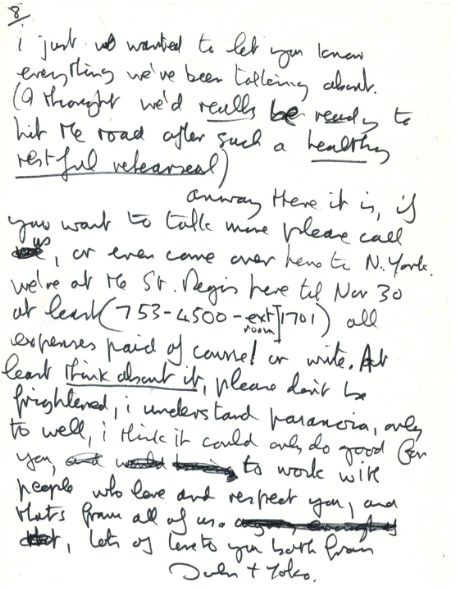 8
i just wanted to let you know
everything we've been talking about.
(I thought we'd really be ready to
hit the road after such a healthy
restful rehearsal)
anyway there it is, if
you want to talk more please call
us, or even come over here to N. York.
we're at the St. Regis here til Nov 30
at least (753-4500-ext 1701) all
room
expenses paid of course! or write. At
least think about it, please don't be
frightened, i understand paranoia, only
to well, i think it could only do good for
you, to work with
people who love and respect you, and
that's from all of us.
lots of love to you both from
John + Yoko.